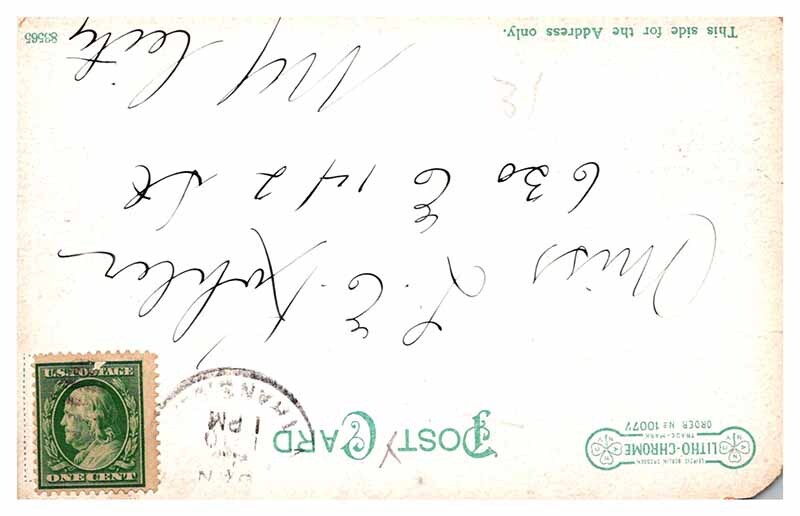 LEIPZIG BERLIN DRESDEN
LITHO-CHROME
TRADE-MARK
ORDER No 10077
POST CARD
1 PM
U.S. POSTAGE
ONE CENT
Miss L. E. Kohler
630 E 142 St
My City
This side for the Address only.
83565